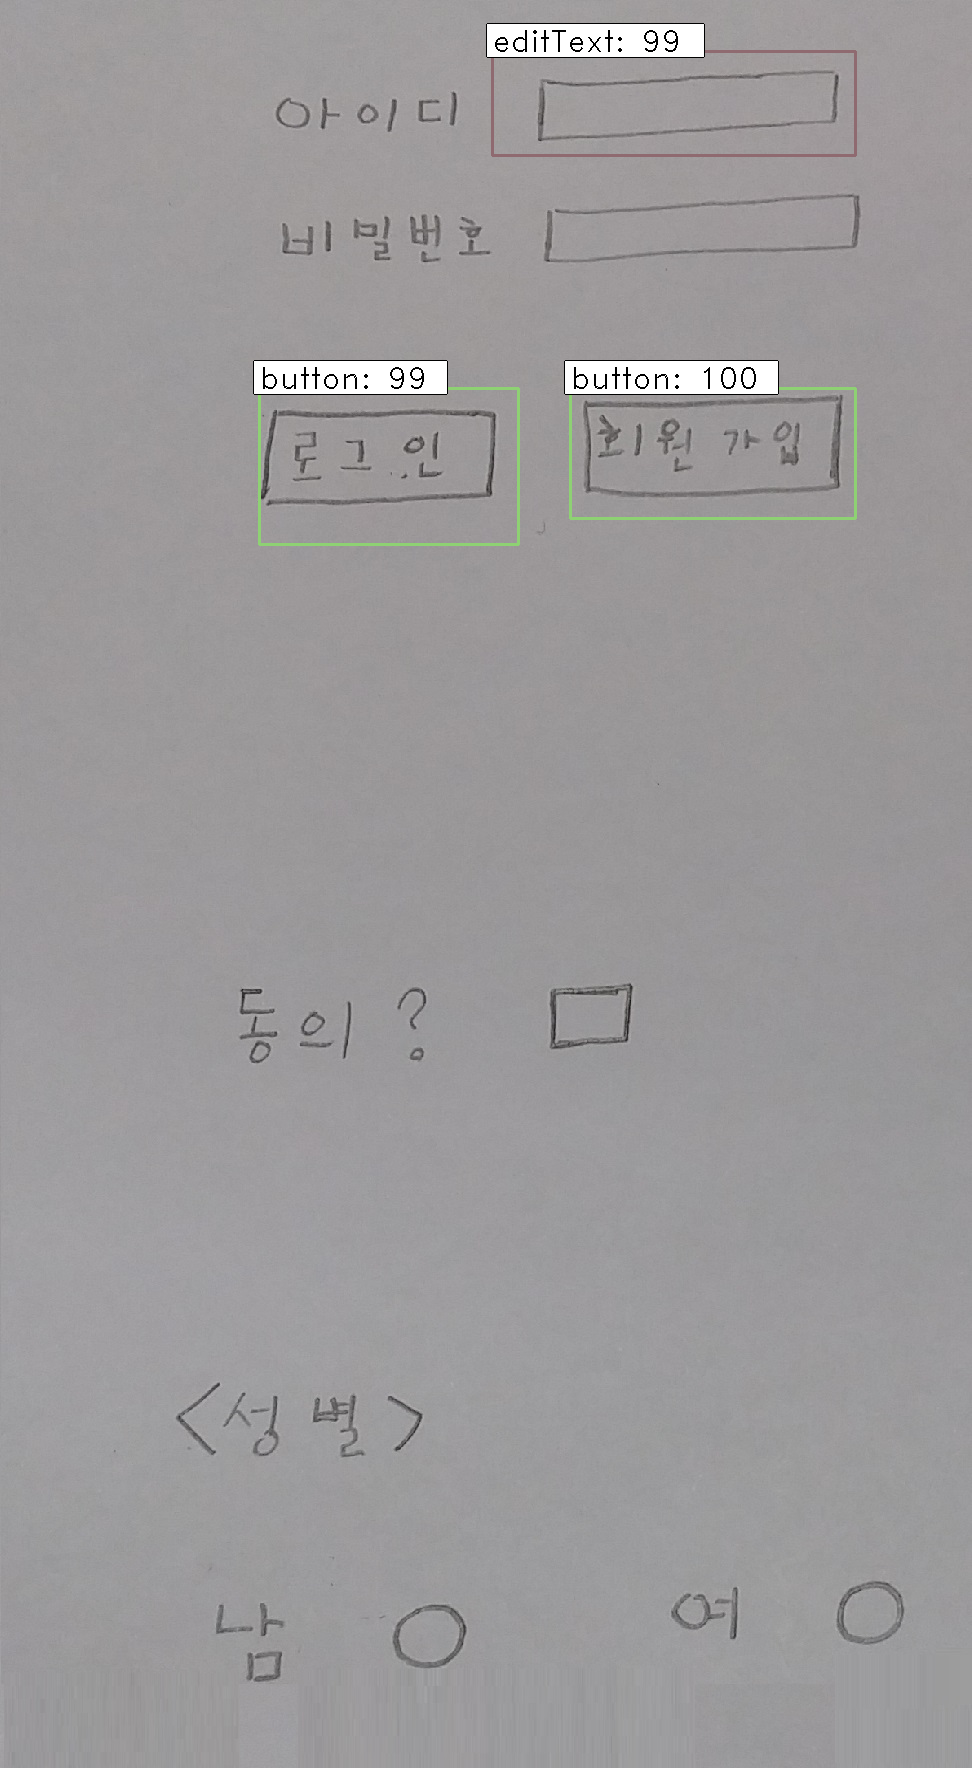 editText: 99
아이디
비밀번호
button: 99 button: 100
로그인 회원가입
동의?
<성별>
남 여